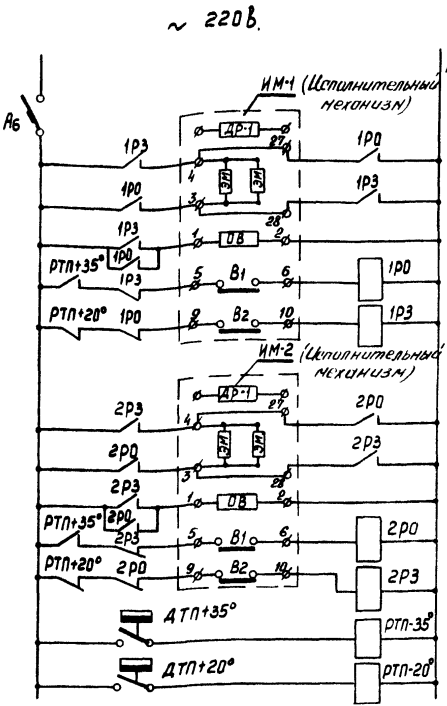 ~ 220В.
ИМ-1 (Исполнительный
механизм)
Аб
ДР-1
27
1РЗ
4
1РО
ЭМ ЭМ
1РО
3
1РЗ
28
1РЗ
1 ОВ 2
1РО
РТП+35°
1РЗ
5 В1 6
1РО
РТП+20°
1РО
9 В2 10
1РЗ
ИМ-2 (Исполнительный
механизм)
ДР-1
27
2РЗ
4
2РО
ЭМ ЭМ
2РО
3
2РЗ
28
2РЗ
1 ОВ 2
2РО
РТП+35°
2РЗ
5 В1 6
2РО
РТП+20°
2РО
9 В2 10
2РЗ
ДТП+35°
РТП-35°
ДТП+20°
РТП-20°